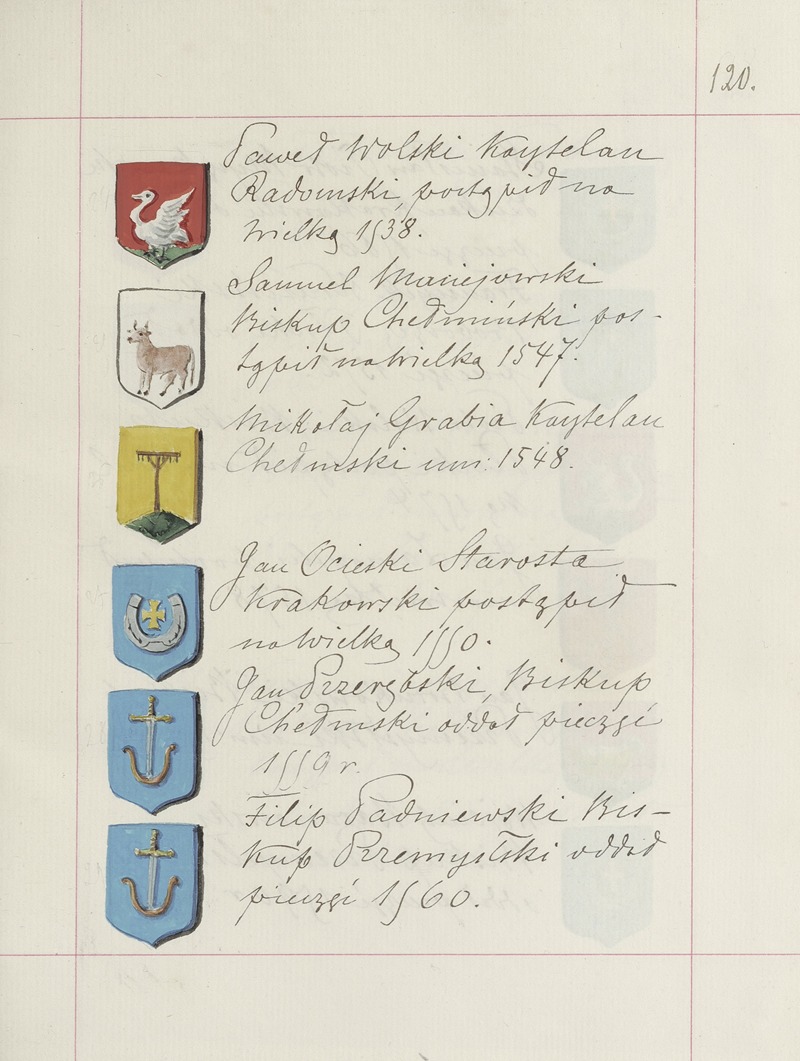 120.
Paweł Wolski Kasztelan
Radomski, postąpił na
Wielką 1538.
Samuel Maciejowski
Biskup Chełmiński pos-
tąpił na Wielką 1547.
Mikołaj Grabia Kasztelan
Chełmski um: 1548.
Jan Ocieski Starosta
Krakowski postąpił
na Wielką 1550.
Jan Przerębski, Biskup
Chełmski oddał pieczęć
1559 r.
Filip Padniewski Bis-
kup Przemyślski oddał
pieczęć 1560.